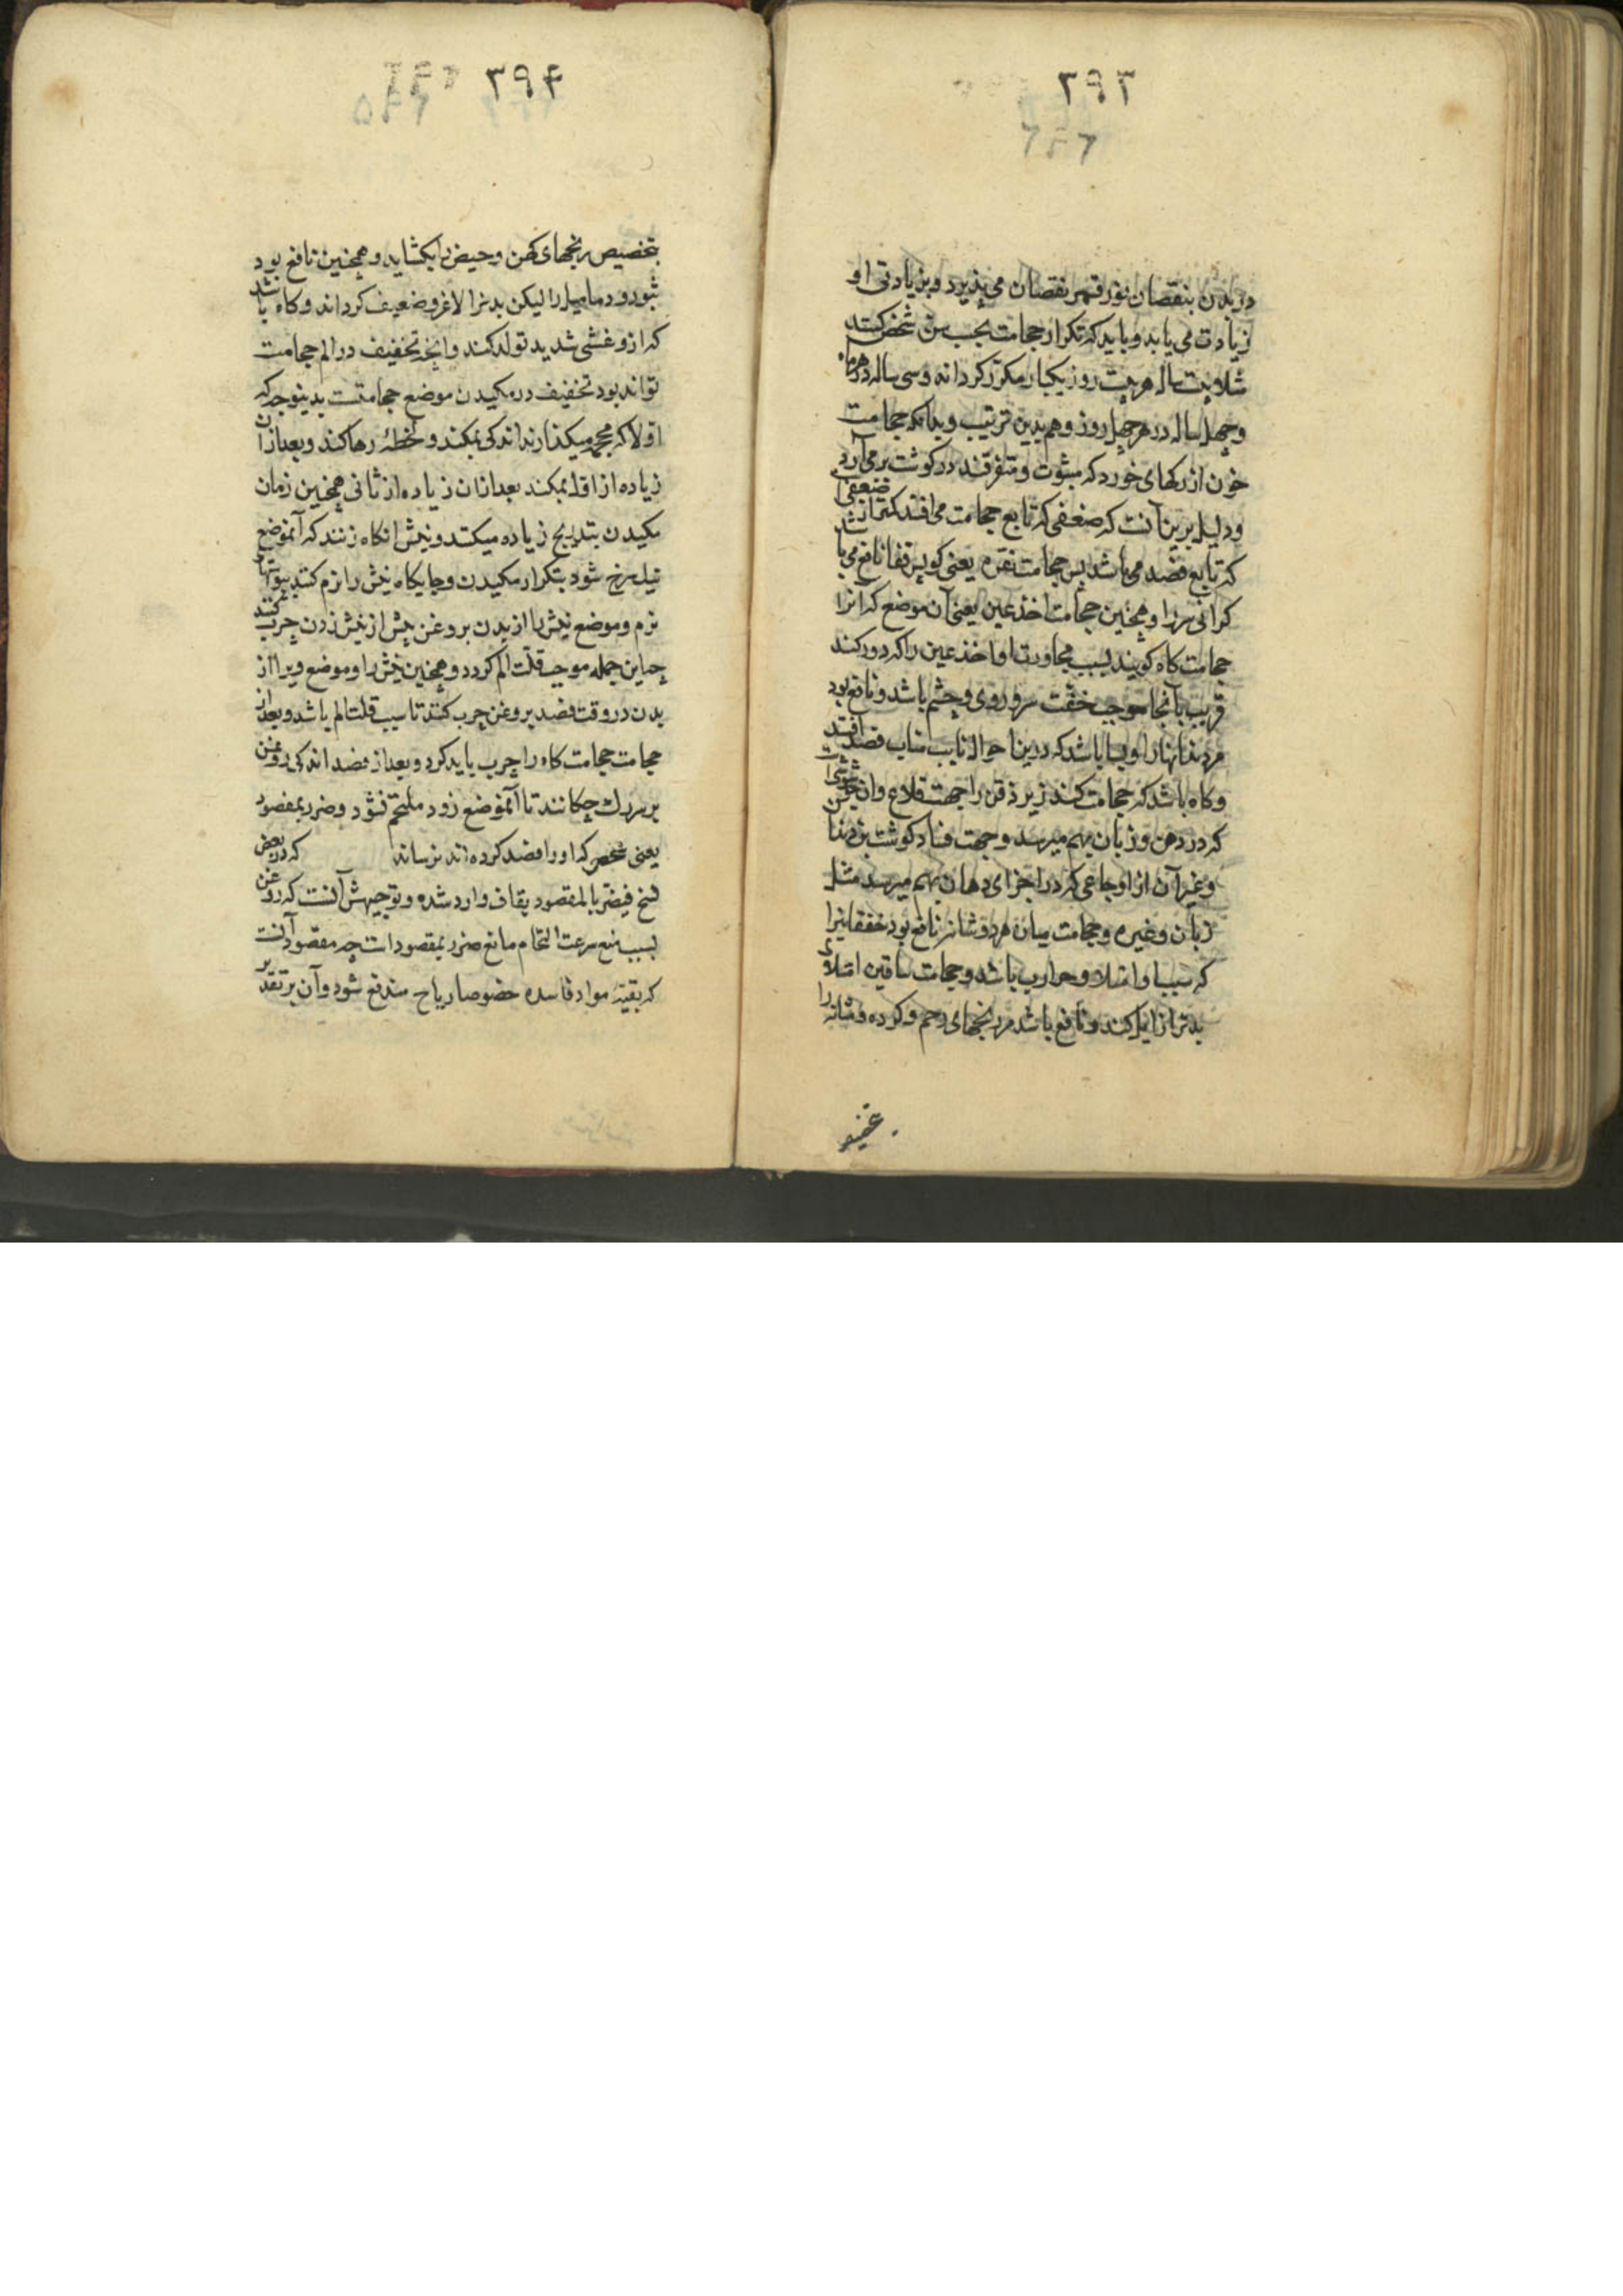 ۳۹۳
در بدن بنقصان نور قمر نقصان می پذیرد و بزیادتی او
زیادت می یابد و باید که تکرار حجامت بحسب سن شخص کنند
مثلا بیست ساله هر بیست روز یکبار مکرر کرداند و سی ساله در هر ماه
و چهل ساله در هر چهل روز و هم بدین ترتیب و بدانکه حجامت
خون از رکهای خورد که مبثوت و متفرقند در کوشت برمی آرد
و دلیل برین آنست که ضعفی که تابع حجامت می افتد کمتر از ضعفی
که تابع فصد می باشد پس حجامت نقره یعنی کو پس قفا نافع می باشد
کرانی سر را و همچنین حجامت اخذعین یعنی آن موضع که آنرا
حجامت کاه کویند بسبب مجاورت او اخذعین را که دور کند
قریب بآنجا موجب خفت سر و روی و چشم باشد و نافع بود
مر دندانها را و بسا باشد که درین احوال نایب مناب فصد افتد
و کاه باشد که حجامت کنند زیر ذقن را جهت قلاع وان
که در دهن و زبان بهم میرسد و جهت فساد کوشت بن دندان
و غیر آن از اوجاعی که در اجزای دهان بهم میرسد مثل
زبان و غیره و حجامت میان هر دو شانه نافع بود خفقانیرا
که سبب او امتلا و حرارت باشد و حجامت ساقین امتلای
بدتر از ایل کند و نافع باشد مر رنجهای رحم و کرده و مثانه را
۳۹۴
بتخصیص رنجهای کهن و حیض را بکشاید و همچنین نافع بود
ثبور و دمامیل را لیکن بدنرا لاغر و ضعیف کرداند و کاه باشد
که ازو غشی شدید تولد کند و آنچه تخفیف در الم حجامت
تواند بود تخفیف در مکیدن موضع حجامتست بدینوجه که
اولا که محجمه میکذارند اندکی بمکند و لحظهٔ رها کنند و بعد از آن
زیاده از اول بمکند بعد ازان زیاده از ثانی همچنین زمان
مکیدن بتدریج زیاده میکنند و نیش آنکاه زنند که آنموضع
نیل سرخ شود بتکرار مکیدن و جایکاه نیش را نرم کنند
نرم و موضع نیش را از بدن بروغن پیش از نیش زدن چرب کنند
چه این جمله موجب قلت الم کردد و همچنین نیش را و موضع ویرا از
بدن در وقت فصد بروغن چرب کنند تا سبب قلت الم باشد و بعد از
حجامت حجامت کاه را چرب باید کرد و بعد از فصد اندکی روغن
بر سر رك چکانند تا آنموضع زود ملتحم نشود و ضرر بمفصود
یعنی شخصی که او را فصد کرده اند نرساند که در بعض
نسخ فیضر بالمقصود بقاف وارد شده و توجیهش آنست که روغن
بسبب منع سرعت التحام مانع ضرر بمقصود است چه مقصود آنست
که بقیهٔ مواد فاسده خصوصا ریاح مندفع شود و آن بر تقدیر